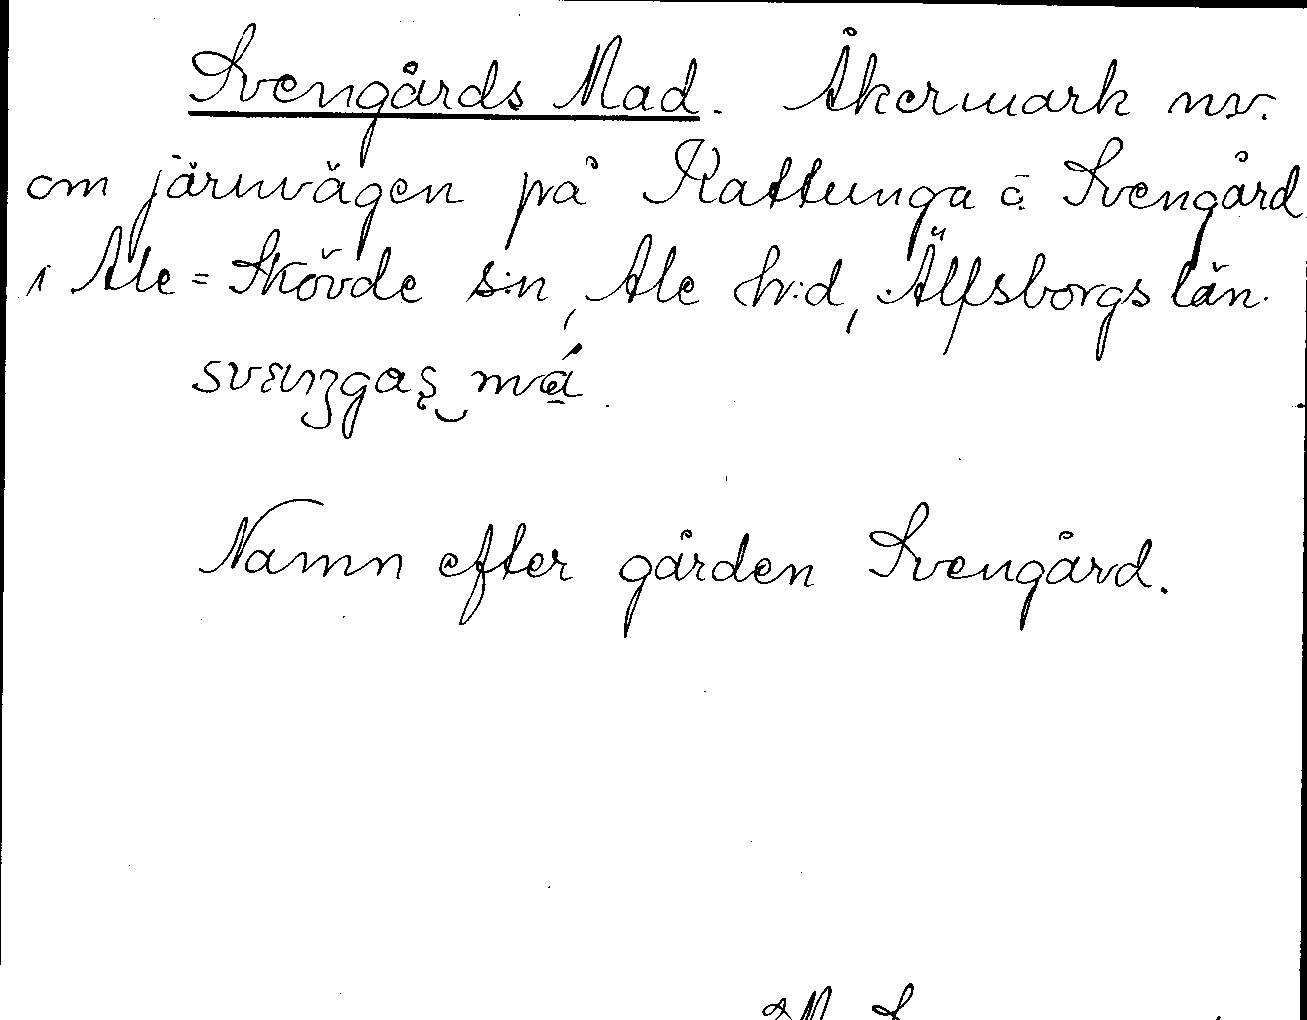 Svengårds Mad. Åkermark nv.
om järnvägen på Kattunga å Svengård
i Ale=Skövde s:n, Ale h:d, Älfsborgs län.
Namn efter gården Svengård.